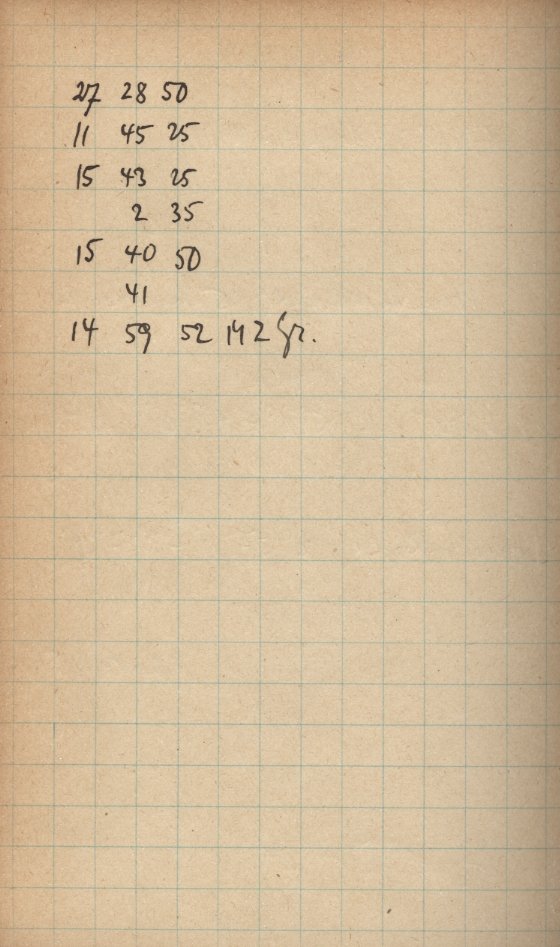 27 28 50
11 45 25
15 43 25
2 35
15 40 50
41
14 59 52